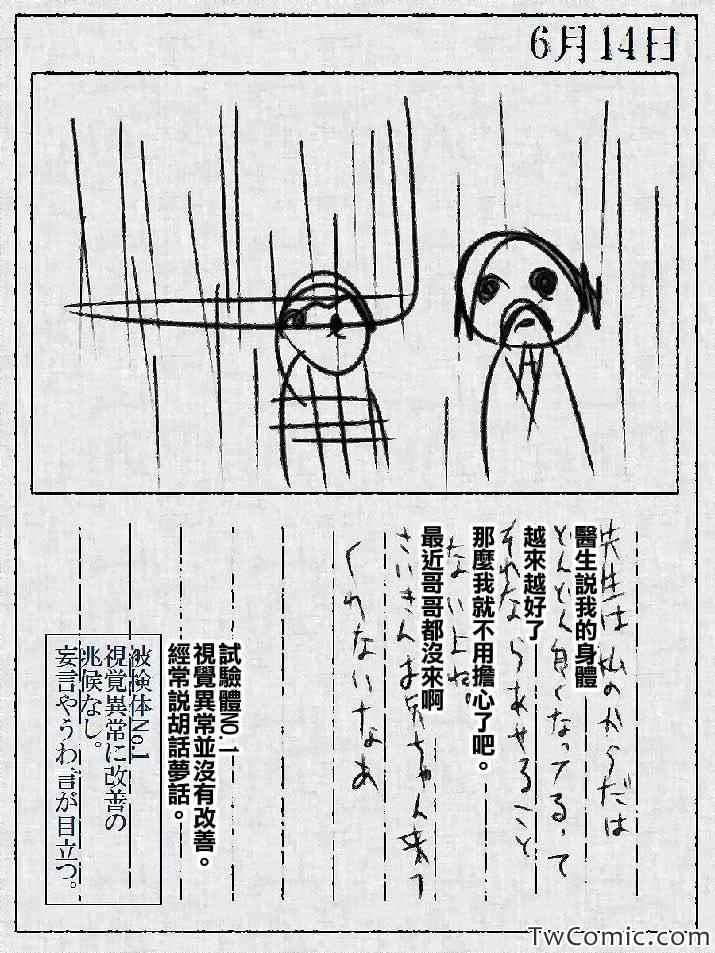 6月14日
先生は私のからだは
醫生說我的身體
どんどん良くなってるって
越來越好了
それならあせること
那麼我就不用擔心了吧。
ない上ね。
最近哥哥都沒來啊
さいきんお兄ちゃん来て
くれないなあ
試驗體NO.1
視覺異常並沒有改善。
經常說胡話夢話。
被検体No.1
視覚異常に改善の
兆候なし。
妄言やうわ言が目立つ。
TwComic.com